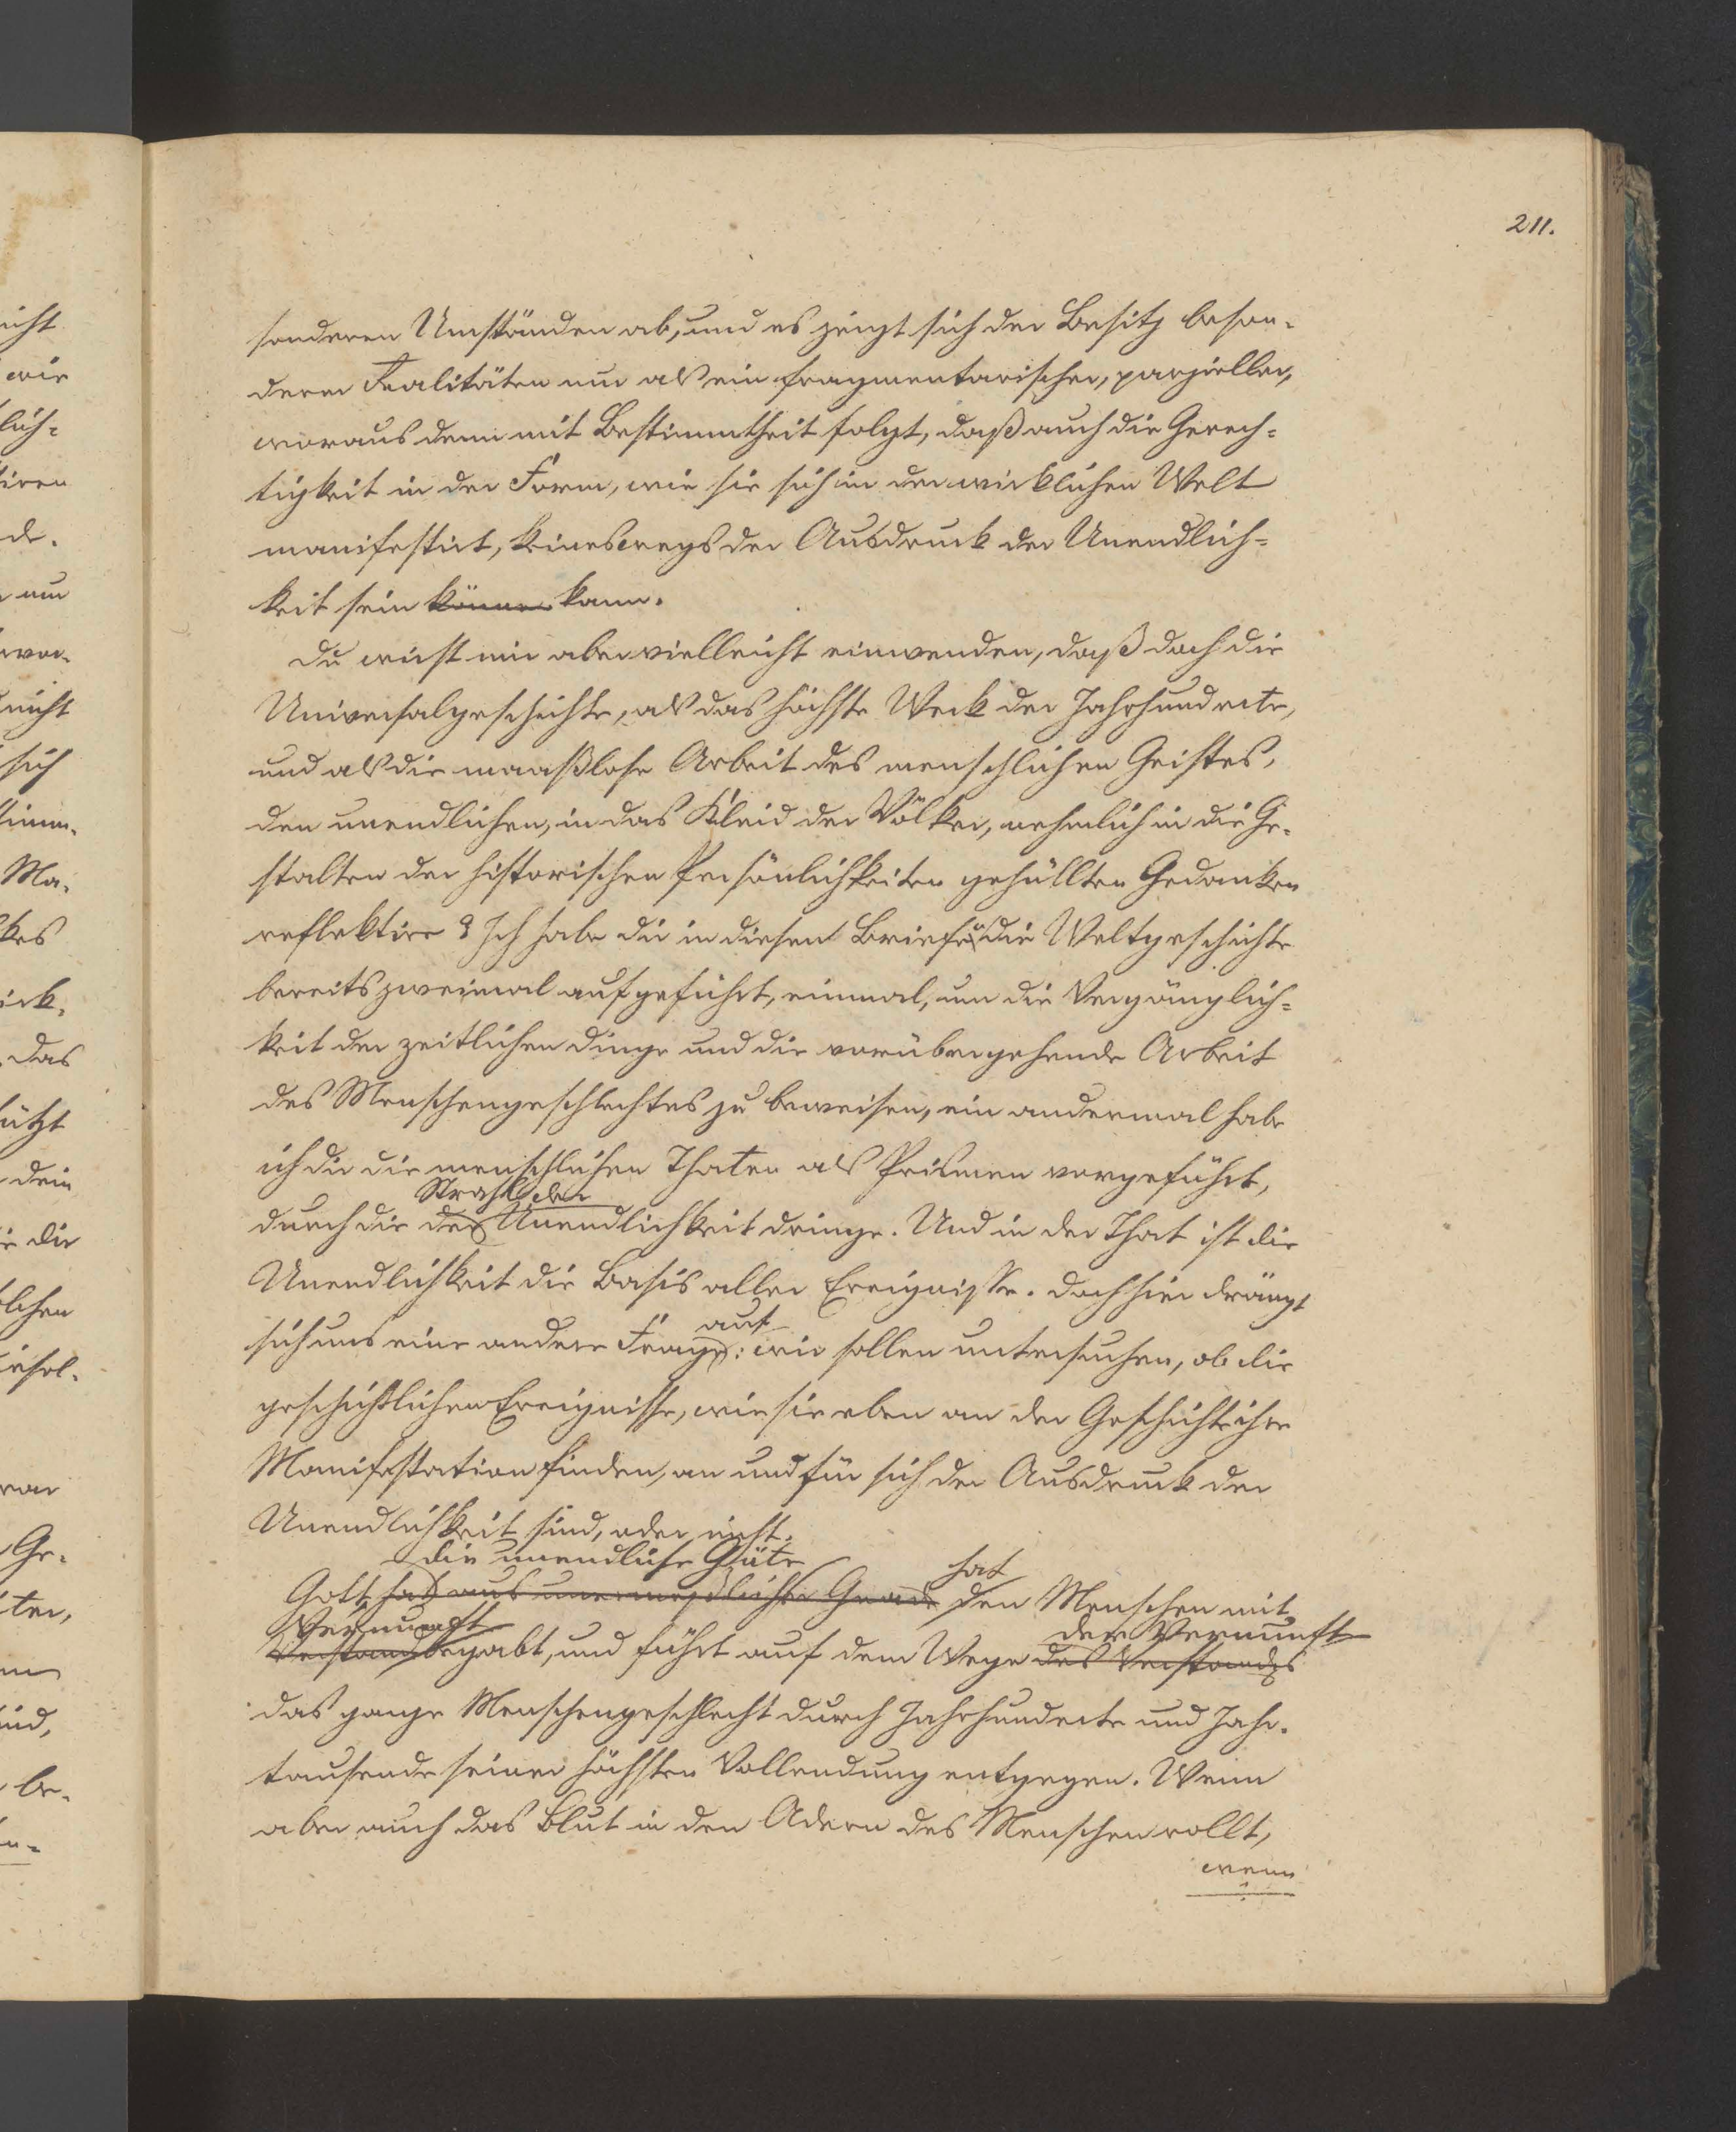 211.
sonderen Umständen ab, und es zeigt sich der Besitz beson-
derer Realitäten nur als ein fragmentarischer, parzieller,
woraus denn mit Bestimmtheit folgt, daß auch die Gerech-
tigkeit in der Form, wie sie sich in der wirklichen Welt
manifestirt, keineswegs der Ausdruck der Unendlich-
keit sein können kann.
Du wirst mir aber vielleicht einwenden, daß doch die
Universalgeschichte, als das höchste Werk der Jahrhunderte,
und als die maaßlose Arbeit des menschlichen Geistes,
den unendlichen, in das Kleid der Völker, nehmlich in die Ge-
stalten der historischen Persönlichkeiten gehüllten Gedanken
reflektire? Ich habe dir in diesen Briefen die Weltgeschichte
bereits zweimal aufgeführt, einmal, um die Vergänglich-
keit der zeitlichen Dinge und die vorübergehende Arbeit
des Menschengeschlechtes zu beweisen, ein andermal habe
ich dir die menschlichen Thaten als Prismen vorgeführt,
Strahl der
durch die der Unendlichkeit dringe. Und in der That ist die
Unendlichkeit die Basis aller Ereignisse. Doch hier drängt
auf
sich uns eine andere Frage: wir sollen untersuchen, ob die
geschichtlichen Ereignisse, wie sie eben an der Geschichte ihre
Manifestation finden, an und für sich der Ausdruck der
Unendlichkeit sind, oder nicht.
die unendliche Güte
hat
Gott hat aus unermeßlicher Gnade den Menschen mit
Vernunft
der Vernunft
Verstand begabt, und führt auf dem Wege des Verstandes
das ganze Menschengeschlecht durch Jahrhunderte und Jahr-
tausende seiner höchsten Vollendung entgegen. Wenn
aber auch das Blut in den Adern des Menschen rollt,
wenn